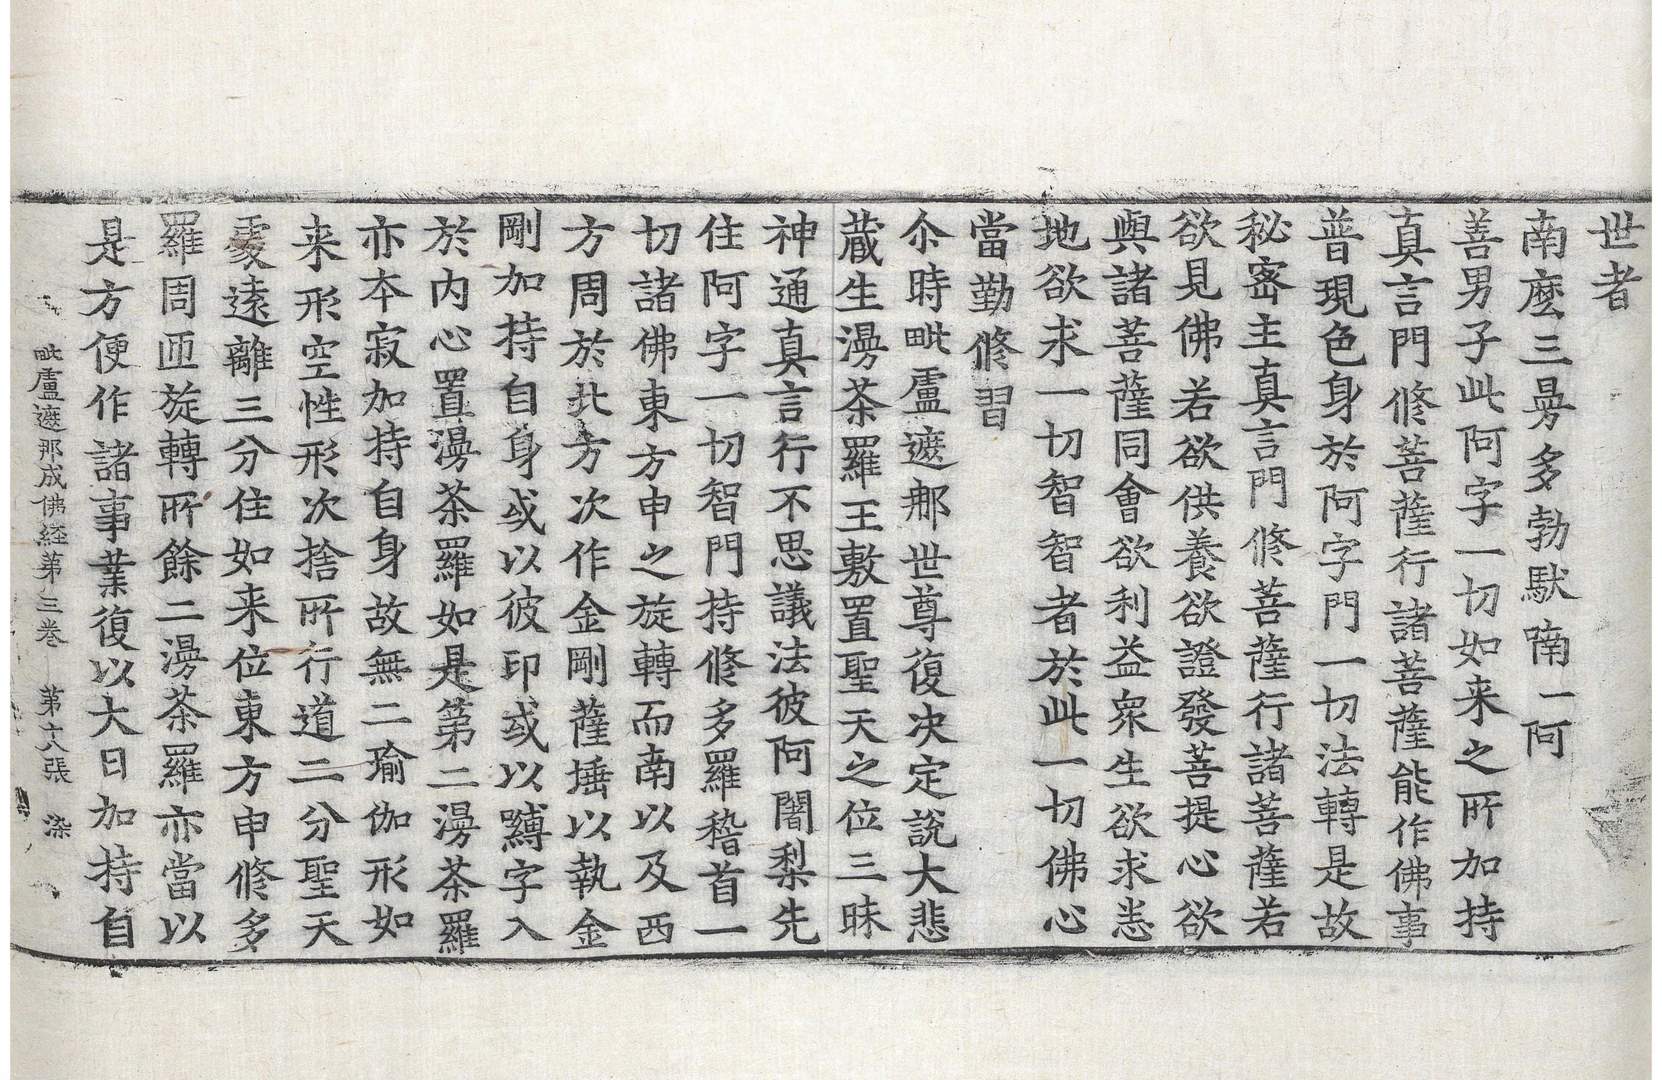 世者
南麽三曼多勃馱喃一阿
善男子此阿字一切如来之所加持
真言門修菩薩行諸菩薩能作佛事
普現色身於阿字門一切法轉是故
秘密主真言門修菩薩行諸菩薩若
欲見佛若欲供養欲證發菩提心欲
與諸菩薩同會欲利益衆生欲求悉
地欲求一切智智者於此一切佛心
當勤修習
尒時毗盧遮那世尊復決定說大悲
蔵生漫荼羅王敷置聖天之位三昧
神通真言行不思議法彼阿闍梨先
住阿字一切智門持修多羅稽首一
切諸佛東方申之旋轉而南以及西
方周於北方次作金剛薩埵以執金
剛加持自身或以彼印或以嚩字入
於內心置漫荼羅如是第二漫荼羅
亦本寂加持自身故無二瑜伽形如
来形空性形次捨所行道二分聖天
處遠離三分住如来位東方申修多
羅周匝旋轉所餘二漫荼羅亦當以
是方便作諸事業復以大日加持自
毗盧遮那成佛経第三巻 第六張 染